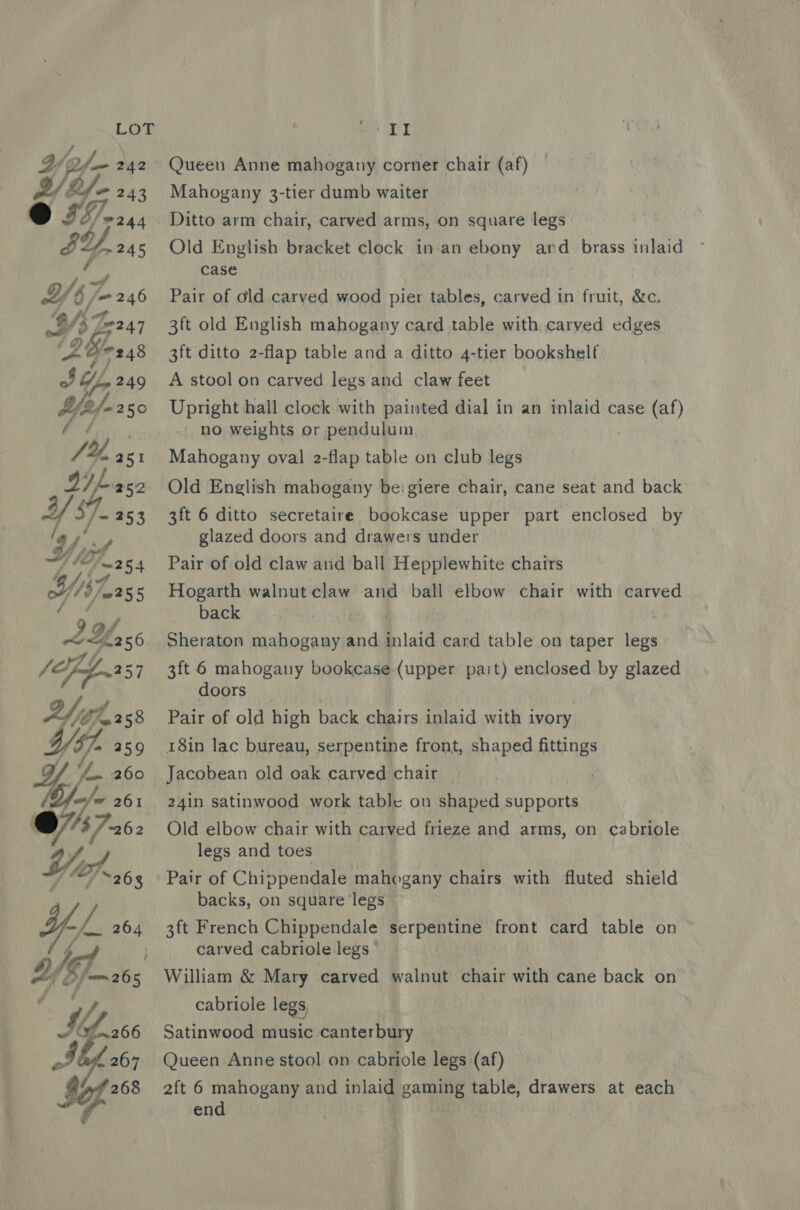 LOT 11
242 Queen Anne mahogany corner chair (af)
243 Mahogany 3-tier dumb waiter
244 Ditto arm chair, carved arms, on square legs
245 Old English bracket clock in an ebony and brass inlaid
case
246 Pair of old carved wood pier tables, carved in fruit, &c.
247 3ft old English mahogany card table with carved edges
248 3ft ditto 2-flap table and a ditto 4-tier bookshelf
249 A stool on carved legs and claw feet
250 Upright hall clock with painted dial in an inlaid case (af)
no weights or pendulum
251 Mahogany oval 2-flap table on club legs
252 Old English mahogany bergiere chair, cane seat and back
253 3ft 6 ditto secretaire bookcase upper part enclosed by
glazed doors and drawers under
254 Pair of old claw and ball Hepplewhite chairs
255 Hogarth walnut claw and ball elbow chair with carved
back
256 Sheraton mahogany and inlaid card table on taper legs
257 3ft 6 mahogany bookcase (upper part) enclosed by glazed
doors
258 Pair of old high back chairs inlaid with ivory
259 18in lac bureau, serpentine front, shaped fittings
260 Jacobean old oak carved chair
261 24in satinwood work table on shaped supports
262 Old elbow chair with carved frieze and arms, on cabriole
legs and toes
263 Pair of Chippendale mahogany chairs with fluted shield
backs, on square legs
264 3ft French Chippendale serpentine front card table on
carved cabriole legs
265 William & Mary carved walnut chair with cane back on
cabriole legs
266 Satinwood music canterbury
267 Queen Anne stool on cabriole legs (af)
268 2ft 6 mahogany and inlaid gaming table, drawers at each
end